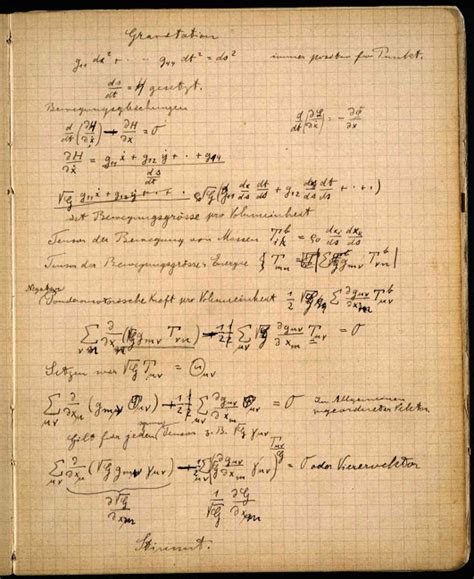 Gravitation
g₁₁ dx² + · · g₄₄ dt² = ds²   immer positiv für Punkt.
ds/dt = H gesetzt.
Bewegungsgleichungen
d/dt (∂H/∂ẋ) − ∂H/∂x = 0   d/dt (∂L/∂ẋ) = − ∂Φ/∂x
∂H/∂ẋ = (g₁₁ ẋ + g₁₂ ẏ + · · g₁₄) / (ds/dt)
√G (g₁₁ dx/ds dt/ds + g₁₂ dy/ds dt/ds + · · )
ist Bewegungsgrösse pro Volumeinheit
Tensor der Bewegung von Massen T^b_ik = ρ₀ dx_i/ds dx_k/ds
Tensor der Bewegungsgrösse u. Energie
Negative Ponderomotorische Kraft pro Volumeinheit 1/2 √G Σ ∂g_μν/∂x_m T^b_μν
Σ_νn ∂/∂x_n (√G g_mν T_νn) − 1/2 Σ √G ∂g_μν/∂x_m T_μν = 0
Setzen wir √G T_μν = Θ_μν
Σ_μν ∂/∂x_μ (g_mν Θ_μν) − 1/2 Σ_μν ∂g_μν/∂x_m Θ_μν = 0
Im Allgemeinen
zugeordneter Vektor
Gilt für jeden Tensor z. B. √G γ_μν
Σ_μν ∂/∂x_μ (√G g_mν γ_μν) − 1/2 Σ √G ∂g_μν/∂x_m γ_μν = 0 oder Vierervektor
∂√G/∂x_m   1/√G ∂G/∂x_m
Stimmt.